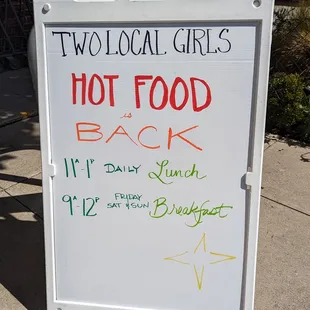 TWO LOCAL GIRLS
HOT FOOD
is
BACK
11A-1P DAILY Lunch
9A-12P FRIDAY SAT & SUN Breakfast